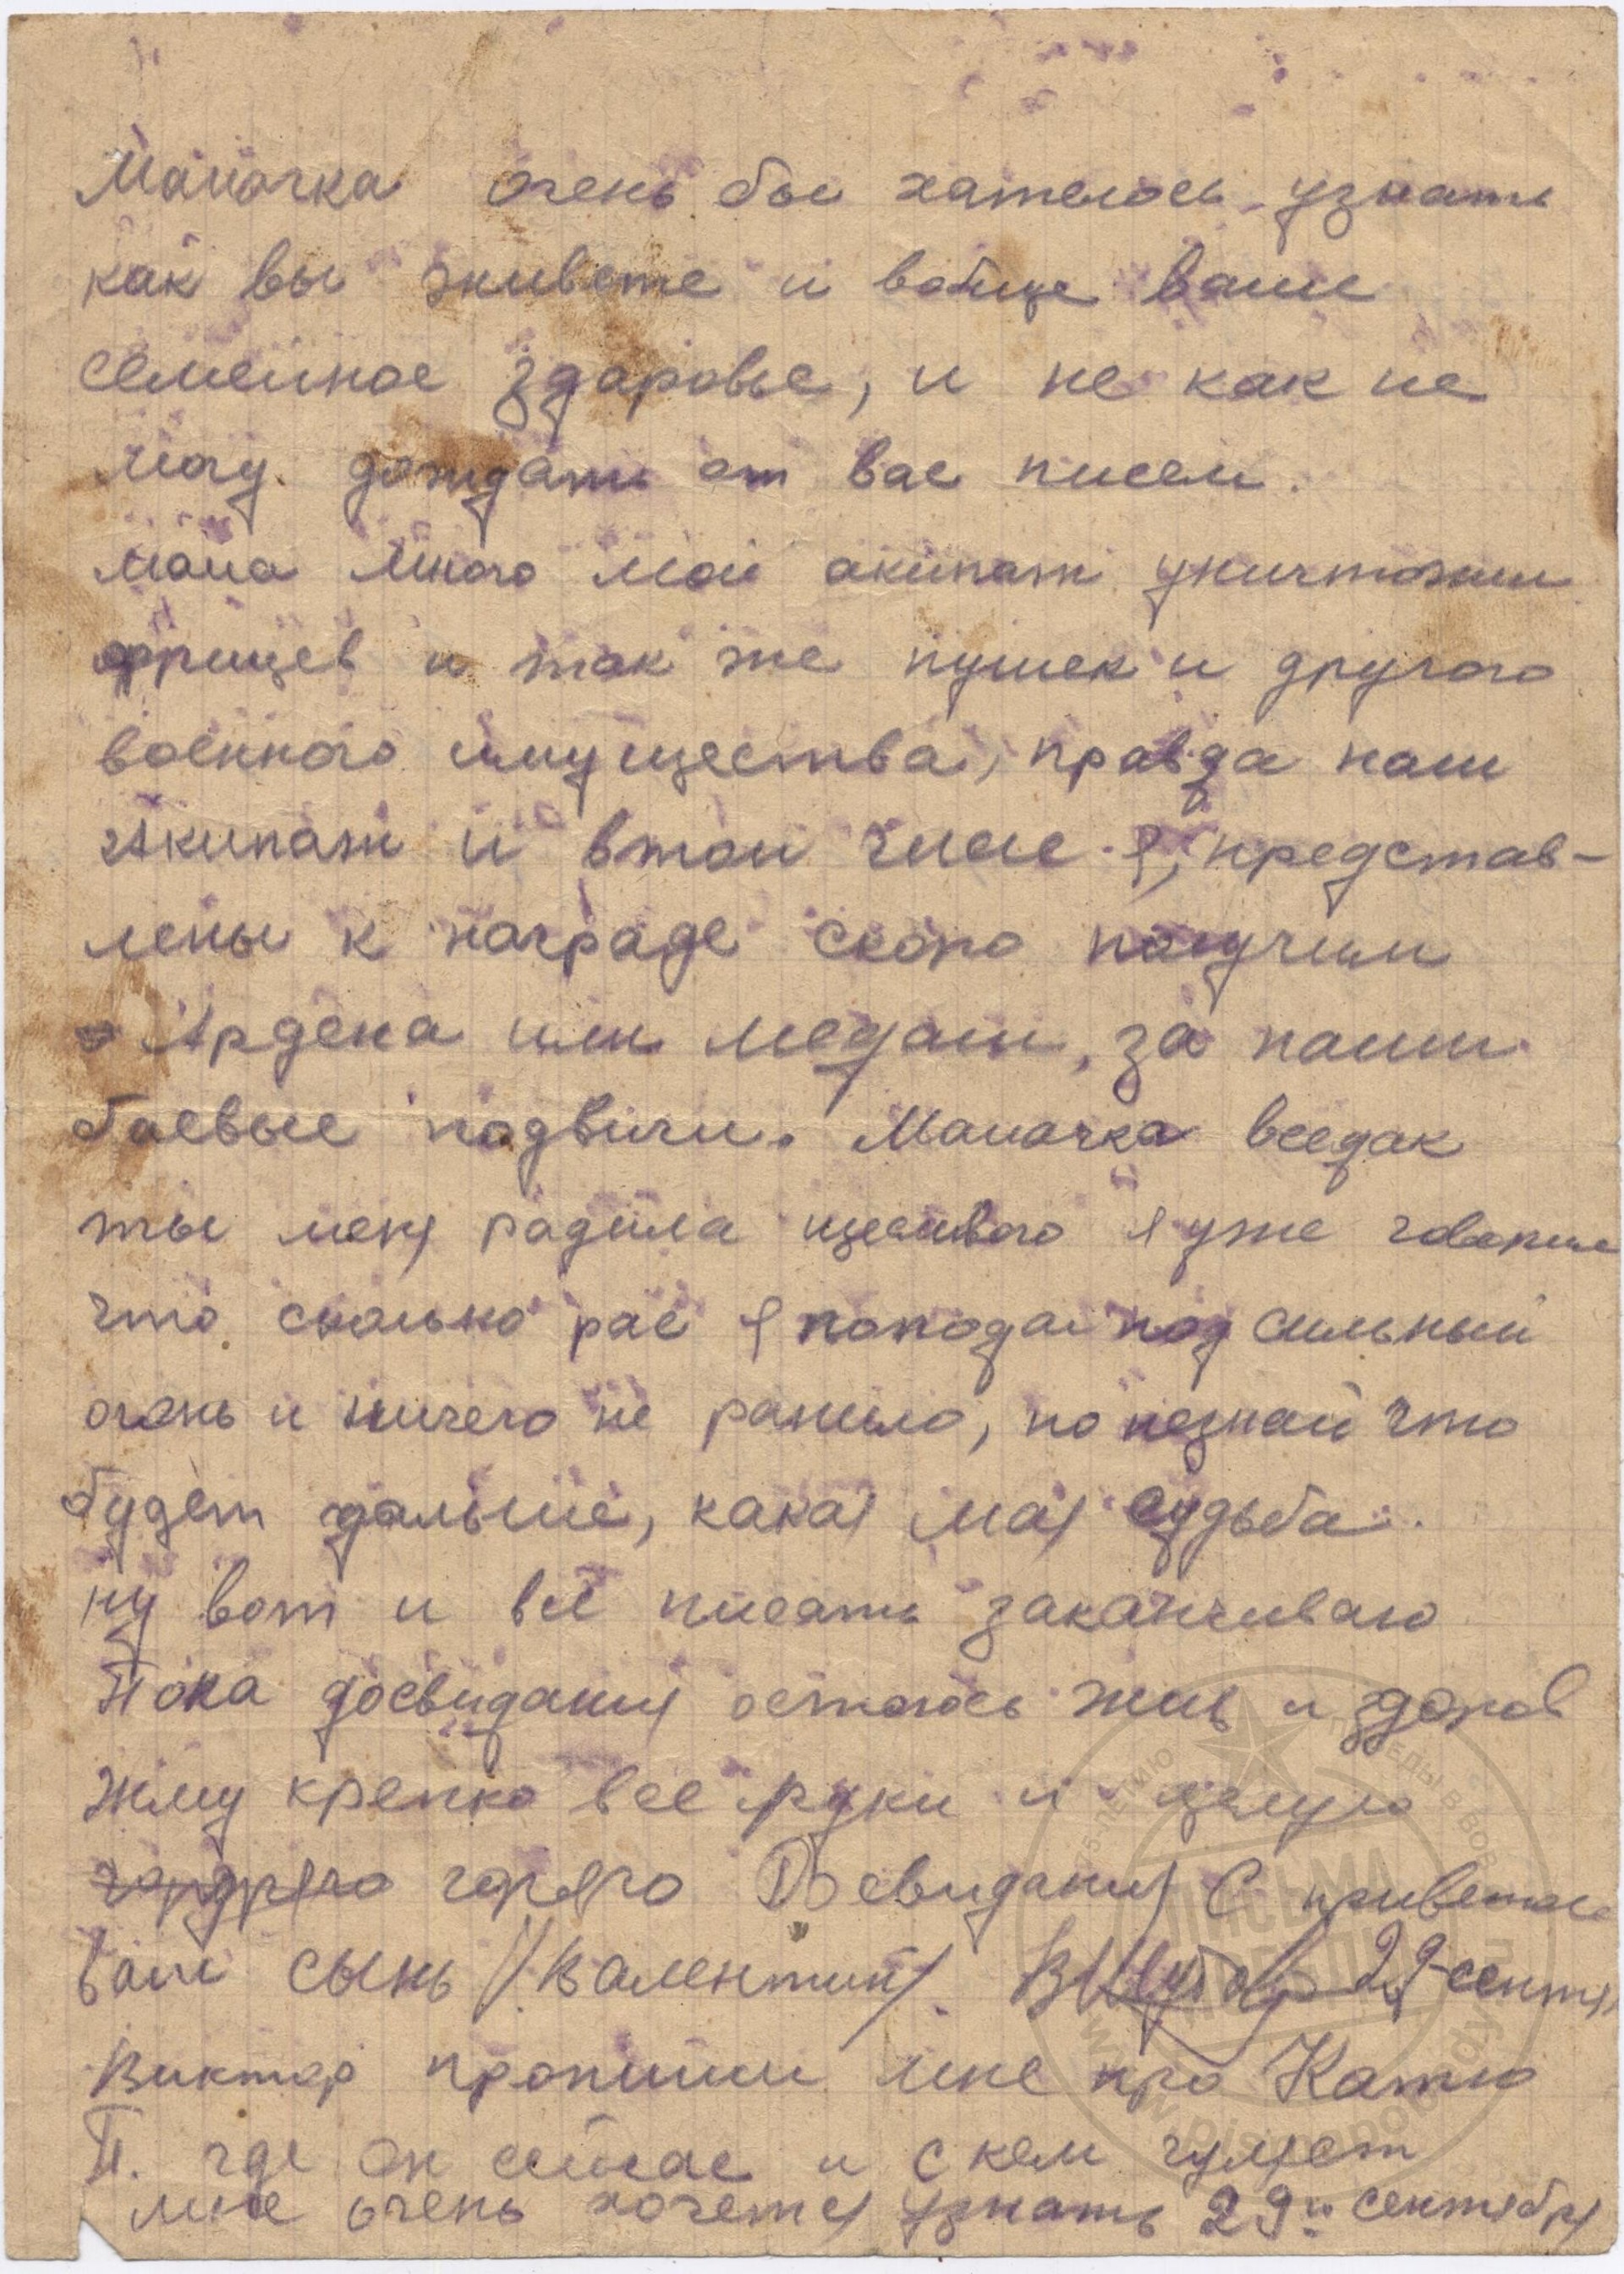 Мамачка очень бы хателось узнать
как вы живете и вобще ваше
семейное здаровье, и не как не
могу дождать от вас писем.
мама много мой акипаж уничтожил
фрицев и так же пушек и другого
военного имущества, правда наш
Акипаж и втом числе я, представ-
лены к награде скоро получим
Ардена или медали, за наши
боевые подвиги. Мамачка вседак
ты меня радила щесливого я уже говорил
что сколько рас я пополал под сильный
огонь и ничего не ранило, но незнай что
будет дальше, какая мая судьба.
ну вот и всё писать заканчиваю
Пока досвидания остаюсь жив и здоров
Жму крепко все руки и целую
горячо Досвидания С приветом
Ваш сынь /Валентин/ 29 сентя
Виктор пропиши мне про Катю
П. где он сейчас и с кем гуляет
мне очень хочется узнать 29 сентября
75-ЛЕТИЮ ПОБЕДЫ В ВОВ
ПИСЬМА ПОБЕДЫ
www.pismapobedy.ru